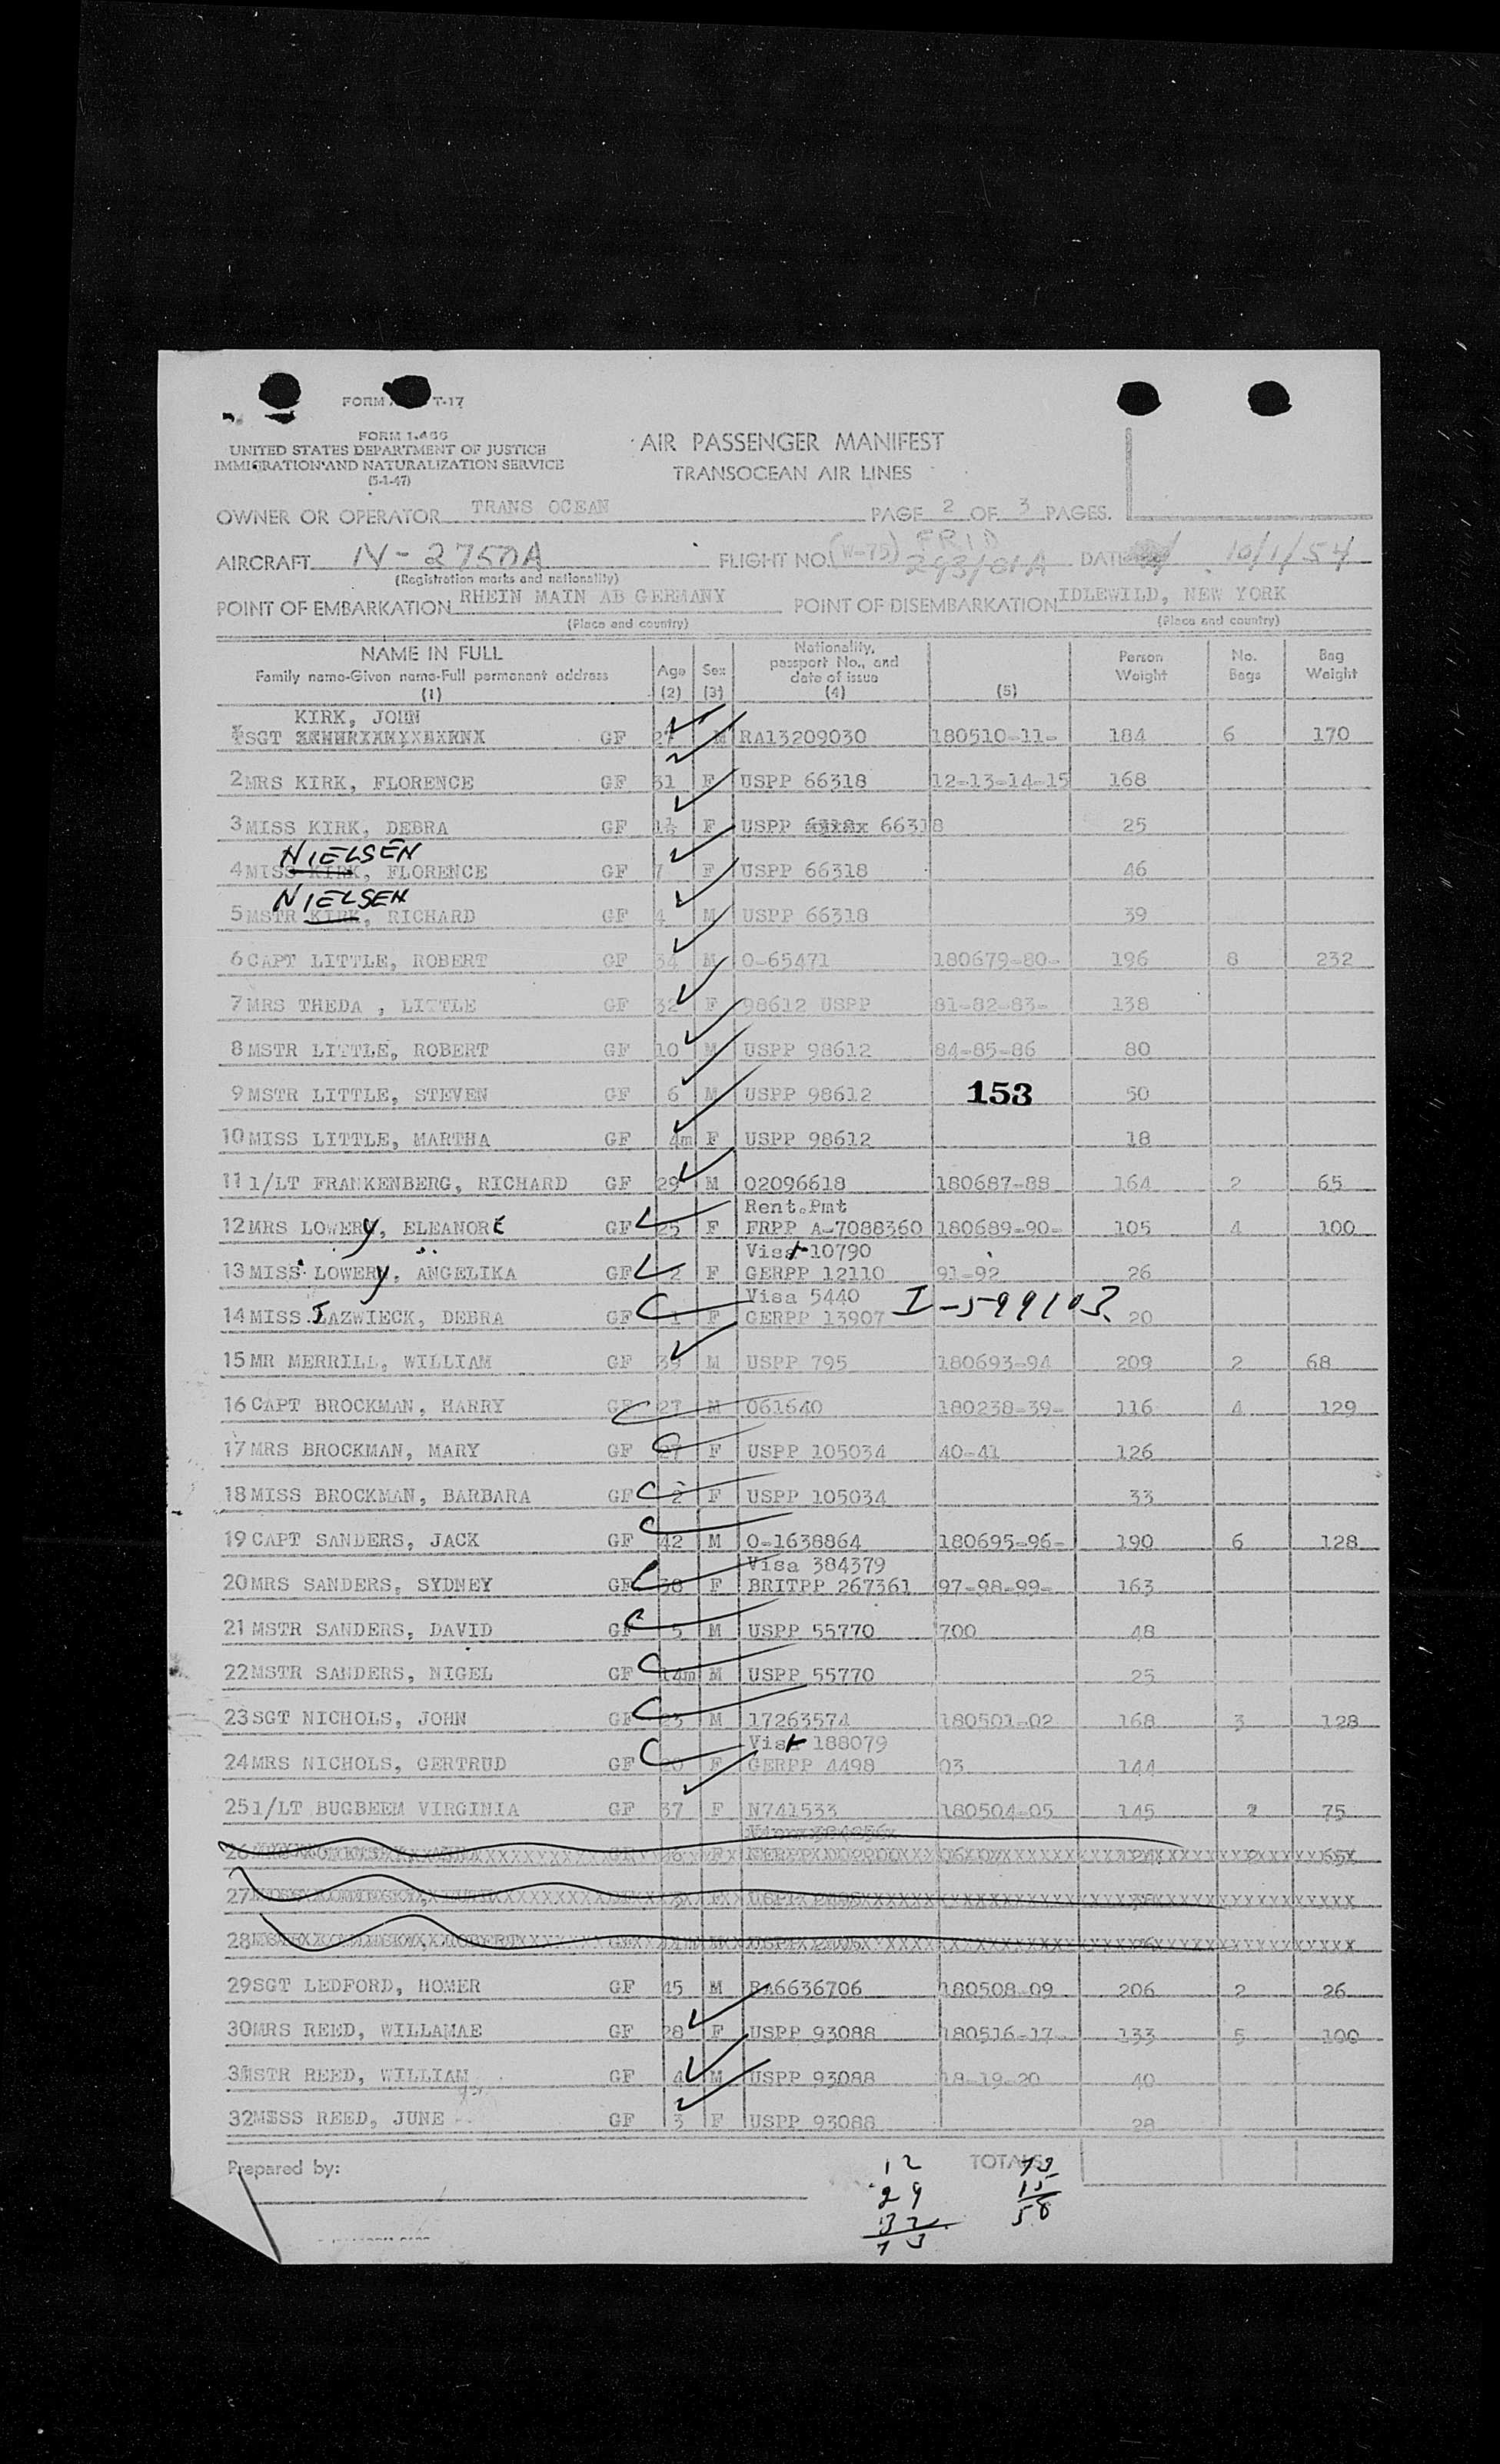 FORM T-17
FORM 1.466
UNITED STATES DEPARTMENT OF JUSTICE
IMMIGRATION AND NATURALIZATION SERVICE
(5-1-47)
AIR PASSENGER MANIFEST
TRANSOCEAN AIR LINES
OWNER OR OPERATOR TRANS OCEAN PAGE 2 OF 3 PAGES.
AIRCRAFT N-2750A FLIGHT NO. (W-75) 293/01A DATE 10/1/54
(Registration marks and nationality)
POINT OF EMBARKATION RHEIN MAIN AB GERMANY POINT OF DISEMBARKATION IDLEWILD, NEW YORK
(Place and country) (Place and country)
NAME IN FULL Age Sex Nationality, passport No., and date of issue Person Weight No. Bags Bag Weight
Family name-Given name-Full permanent address
(1) (2) (3) (4) (5)
KIRK, JOHN
SGT GF 27 M RA13209030 180510-11- 184 6 170
2 MRS KIRK, FLORENCE GF 31 F USPP 66318 12-13-14-15 168
3 MISS KIRK, DEBRA GF 1½ F USPP 66318 25
NIELSEN
4 MISS KIRK, FLORENCE GF 7 F USPP 66318 46
NIELSEN
5 MSTR KIRK, RICHARD GF 4 M USPP 66318 39
6 CAPT LITTLE, ROBERT GF 34 M O-65471 180679-80- 196 8 232
7 MRS THEDA , LITTLE GF 32 F 98612 USPP 81-82-83- 138
8 MSTR LITTLE, ROBERT GF 10 M USPP 98612 84-85-86 80
9 MSTR LITTLE, STEVEN GF 6 M USPP 98612 153 50
10 MISS LITTLE, MARTHA GF 4m F USPP 98612 18
11 1/LT FRANKENBERG, RICHARD GF 29 M 02096618 180687-88 164 2 65
Rent.Pmt
12 MRS LOWERy, ELEANORE GF 25 F FRPP A-7088360 180689-90- 105 4 100
Visa 10790
13 MISS LOWERy, ANGELIKA GF 2 F GERPP 12110 91-92 26
Visa 5440
14 MISS LAZWIECK, DEBRA GF 1 F GERPP 13907 I-599103 20
15 MR MERRILL, WILLIAM GF 39 M USPP 795 180693-94 209 2 68
16 CAPT BROCKMAN, HARRY GF 27 M 061640 180238-39- 116 4 129
17 MRS BROCKMAN, MARY GF 27 F USPP 105034 40-41 126
18 MISS BROCKMAN, BARBARA GF 2 F USPP 105034 33
19 CAPT SANDERS, JACK GF 42 M O-1638864 180695-96- 190 6 128
Visa 384379
20 MRS SANDERS, SYDNEY GF 38 F BRITPP 267361 97-98-99- 163
21 MSTR SANDERS, DAVID GF 5 M USPP 55770 700 48
22 MSTR SANDERS, NIGEL GF 14m M USPP 55770 25
23 SGT NICHOLS, JOHN GF 23 M 17263574 180501-02 168 3 128
Visa 188079
24 MRS NICHOLS, GERTRUD GF 20 F GERPP 4498 03 144
25 1/LT BUGBEEM VIRGINIA GF 37 F N741533 180504-05 145 2 75
26
27
28
29 SGT LEDFORD, HOMER GF 45 M RA6636706 180508-09 206 2 26
30 MRS REED, WILLAMAE GF 28 F USPP 93088 180516-17- 133 5 100
31 MSTR REED, WILLIAM GF 4 M USPP 93088 18-19-20 40
32 MISS REED, JUNE GF 3 F USPP 93088 28
Prepared by: TOTALS
12 73
29 15
32 58
73